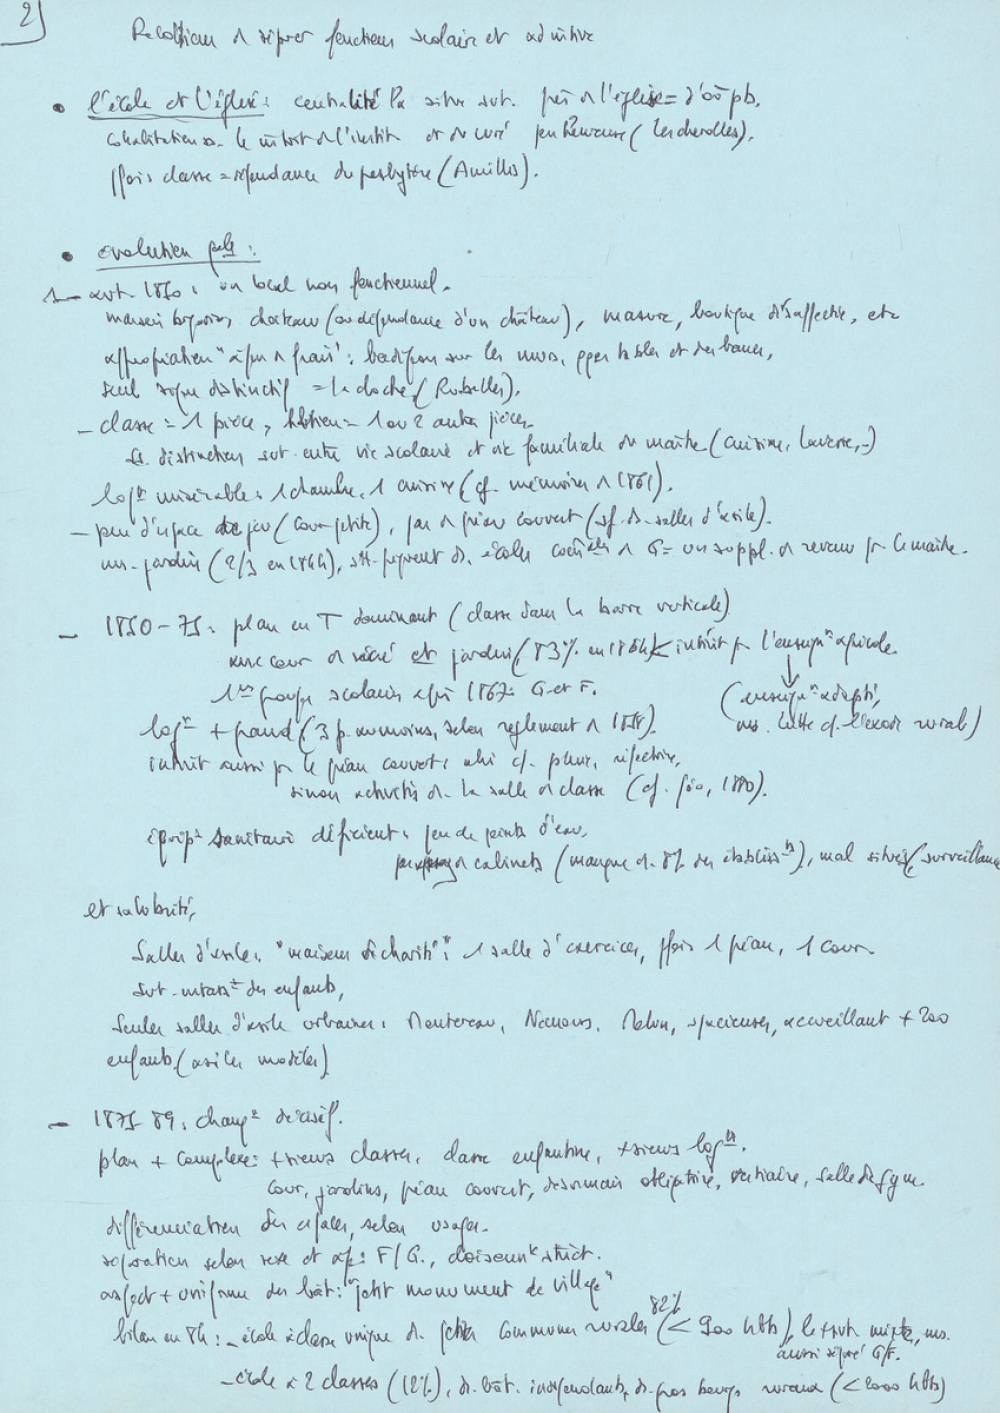 2)
à séparer fonctions scolaire et admitive
• l'école et l'église : centralité la situe svt. près de l'église = d'où pb.
cohabitation ds. le mitoit de l'instit et du curé peu heureuse (Lescherolles),
pfois classe = dépendance du presbytère (Amillis).
• évolution :
1 - avt. 1850 : un local non fonctionnel.
maison château (ou dépendance d'un château), masure, boutique désaffectée, etc
appropriation "à peu de frais" : badigeon sur les murs, qques tables et des bancs,
seul signe distinctif = la cloche (Rubelles),
- classe = 1 pièce, = 1 ou 2 autres pièces.
distinction svt. entre vie scolaire et vie familiale du maître (cuisine, lessive, -)
logt misérable : 1 chambre, 1 cuisine (cf. mémoires de 1861).
- peu d'espace de jeu (cour petite), pas de préau couvert (sf. ds. salles d'asile).
ms. jardin (2/3 en 1844), ds. écoles de G = un suppl. de revenu pr le maître.
- 1850-75 : plan en T dominant (classe dans la barre verticale)
avec cour de récré et jardin (83% en 1864) < intérêt pr l'enseignt agricole.
1ers groupes scolaires après 1867 : G et F.
(enseignt adapté,
ms. lutte c/. l'exode rural)
logt + grand (3 p. au moins, selon règlement de 1858).
intérêt aussi pr le préau couvert : abri c/. pluie, réfectoire,
sinon activités ds. la salle de classe (cf. géo, 1880).
équipt sanitaire déficient : peu de points d'eau,
de cabinets (manque ds. 8% des établissts), mal situés (surveillance
et salubrité,
Salles d'asile : "maison de charité" : 1 salle d'exercices, pfois 1 préau, 1 cour.
svt. des enfants,
Seules salles d'asile urbaines : Montereau, Nemours, Melun, spacieuses, accueillant + 200
enfants (asiles modèles)
- 1875-89 : changt décisif.
plan + complexe : +sieurs classes, classe enfantine, +sieurs logts.
cour, jardins, préau couvert, désormais obligatoire, vestiaire, salle de gym.
différenciation des espaces, selon usages.
séparation selon sexe et âge : F/G., cloisonnt strict.
aspect + uniforme des bât : "petit monument de village"
bilan en 84 : - école à classe unique ds. petites communes rurales 82% (< 900 hbts), le + svt mixte, ms.
aussi séparé G/F.
- école à 2 classes (12%), ds. bât. indépendants, ds. gros bourgs ruraux (< 2000 hbts)